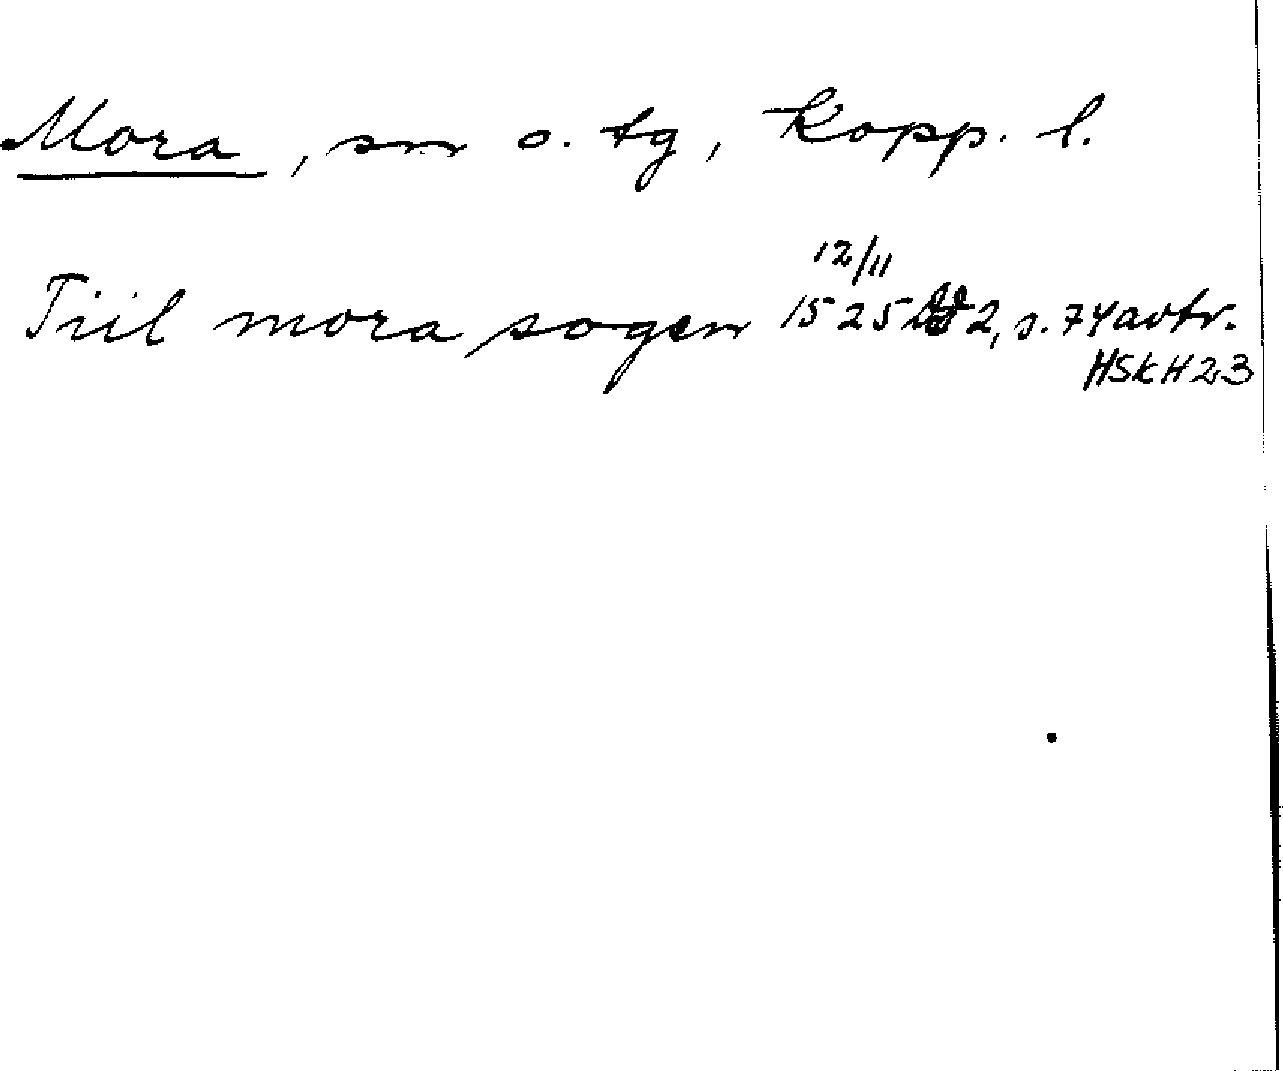 Mora, sn o. tg, Kopp. l.
12/11
Tiil mora sogen 1525 2, s. 74 avtr.
HSkH 23